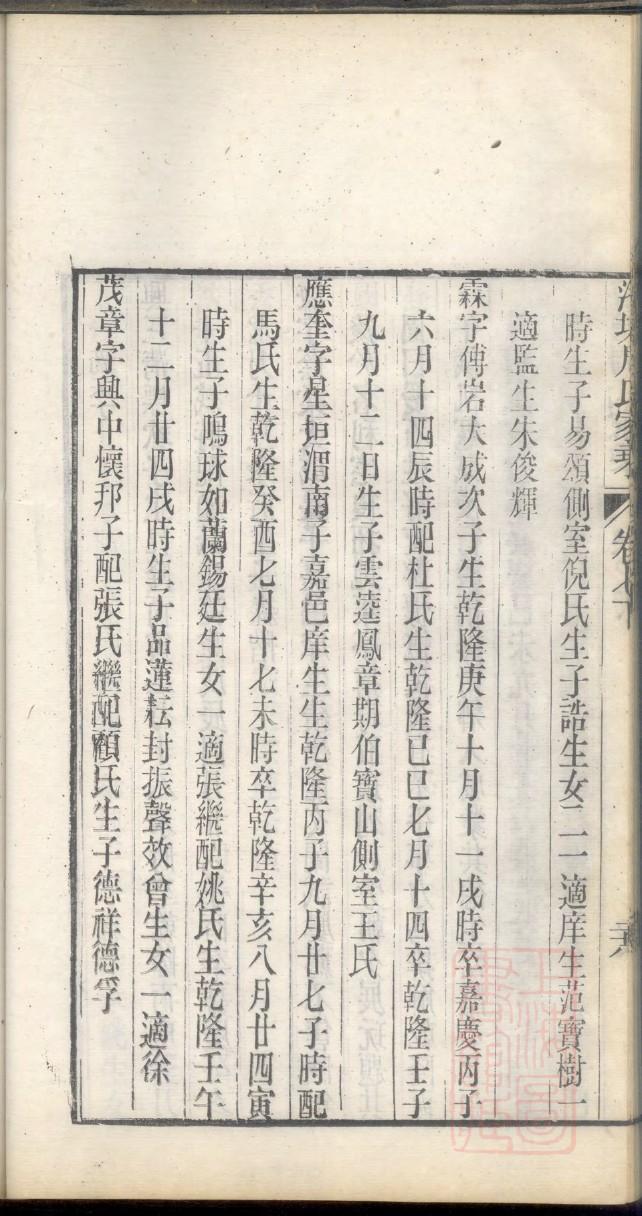 時生子易頌側室倪氏生子誥生女二一適庠生范寶樹一
適監生朱俊輝
霖字傅岩大成次子生乾隆庚午十月十一戌時卒嘉慶丙子
六月十四辰時配杜氏生乾隆己巳七月十四卒乾隆壬子
九月十二日生子雲逵鳳章期伯寶山側室王氏
應奎字星垣渭南子嘉邑庠生生乾隆丙子九月廿七子時配
馬氏生乾隆癸酉七月十七未時卒乾隆辛亥八月廿四寅
時生子鳴球如蘭錫廷生女一適張繼配姚氏生乾隆壬午
十二月廿四戌時生子品蓮耘封振聲效曾生女一適徐
茂章字興中懷邦子配張氏繼配顧氏生子德祥德孚